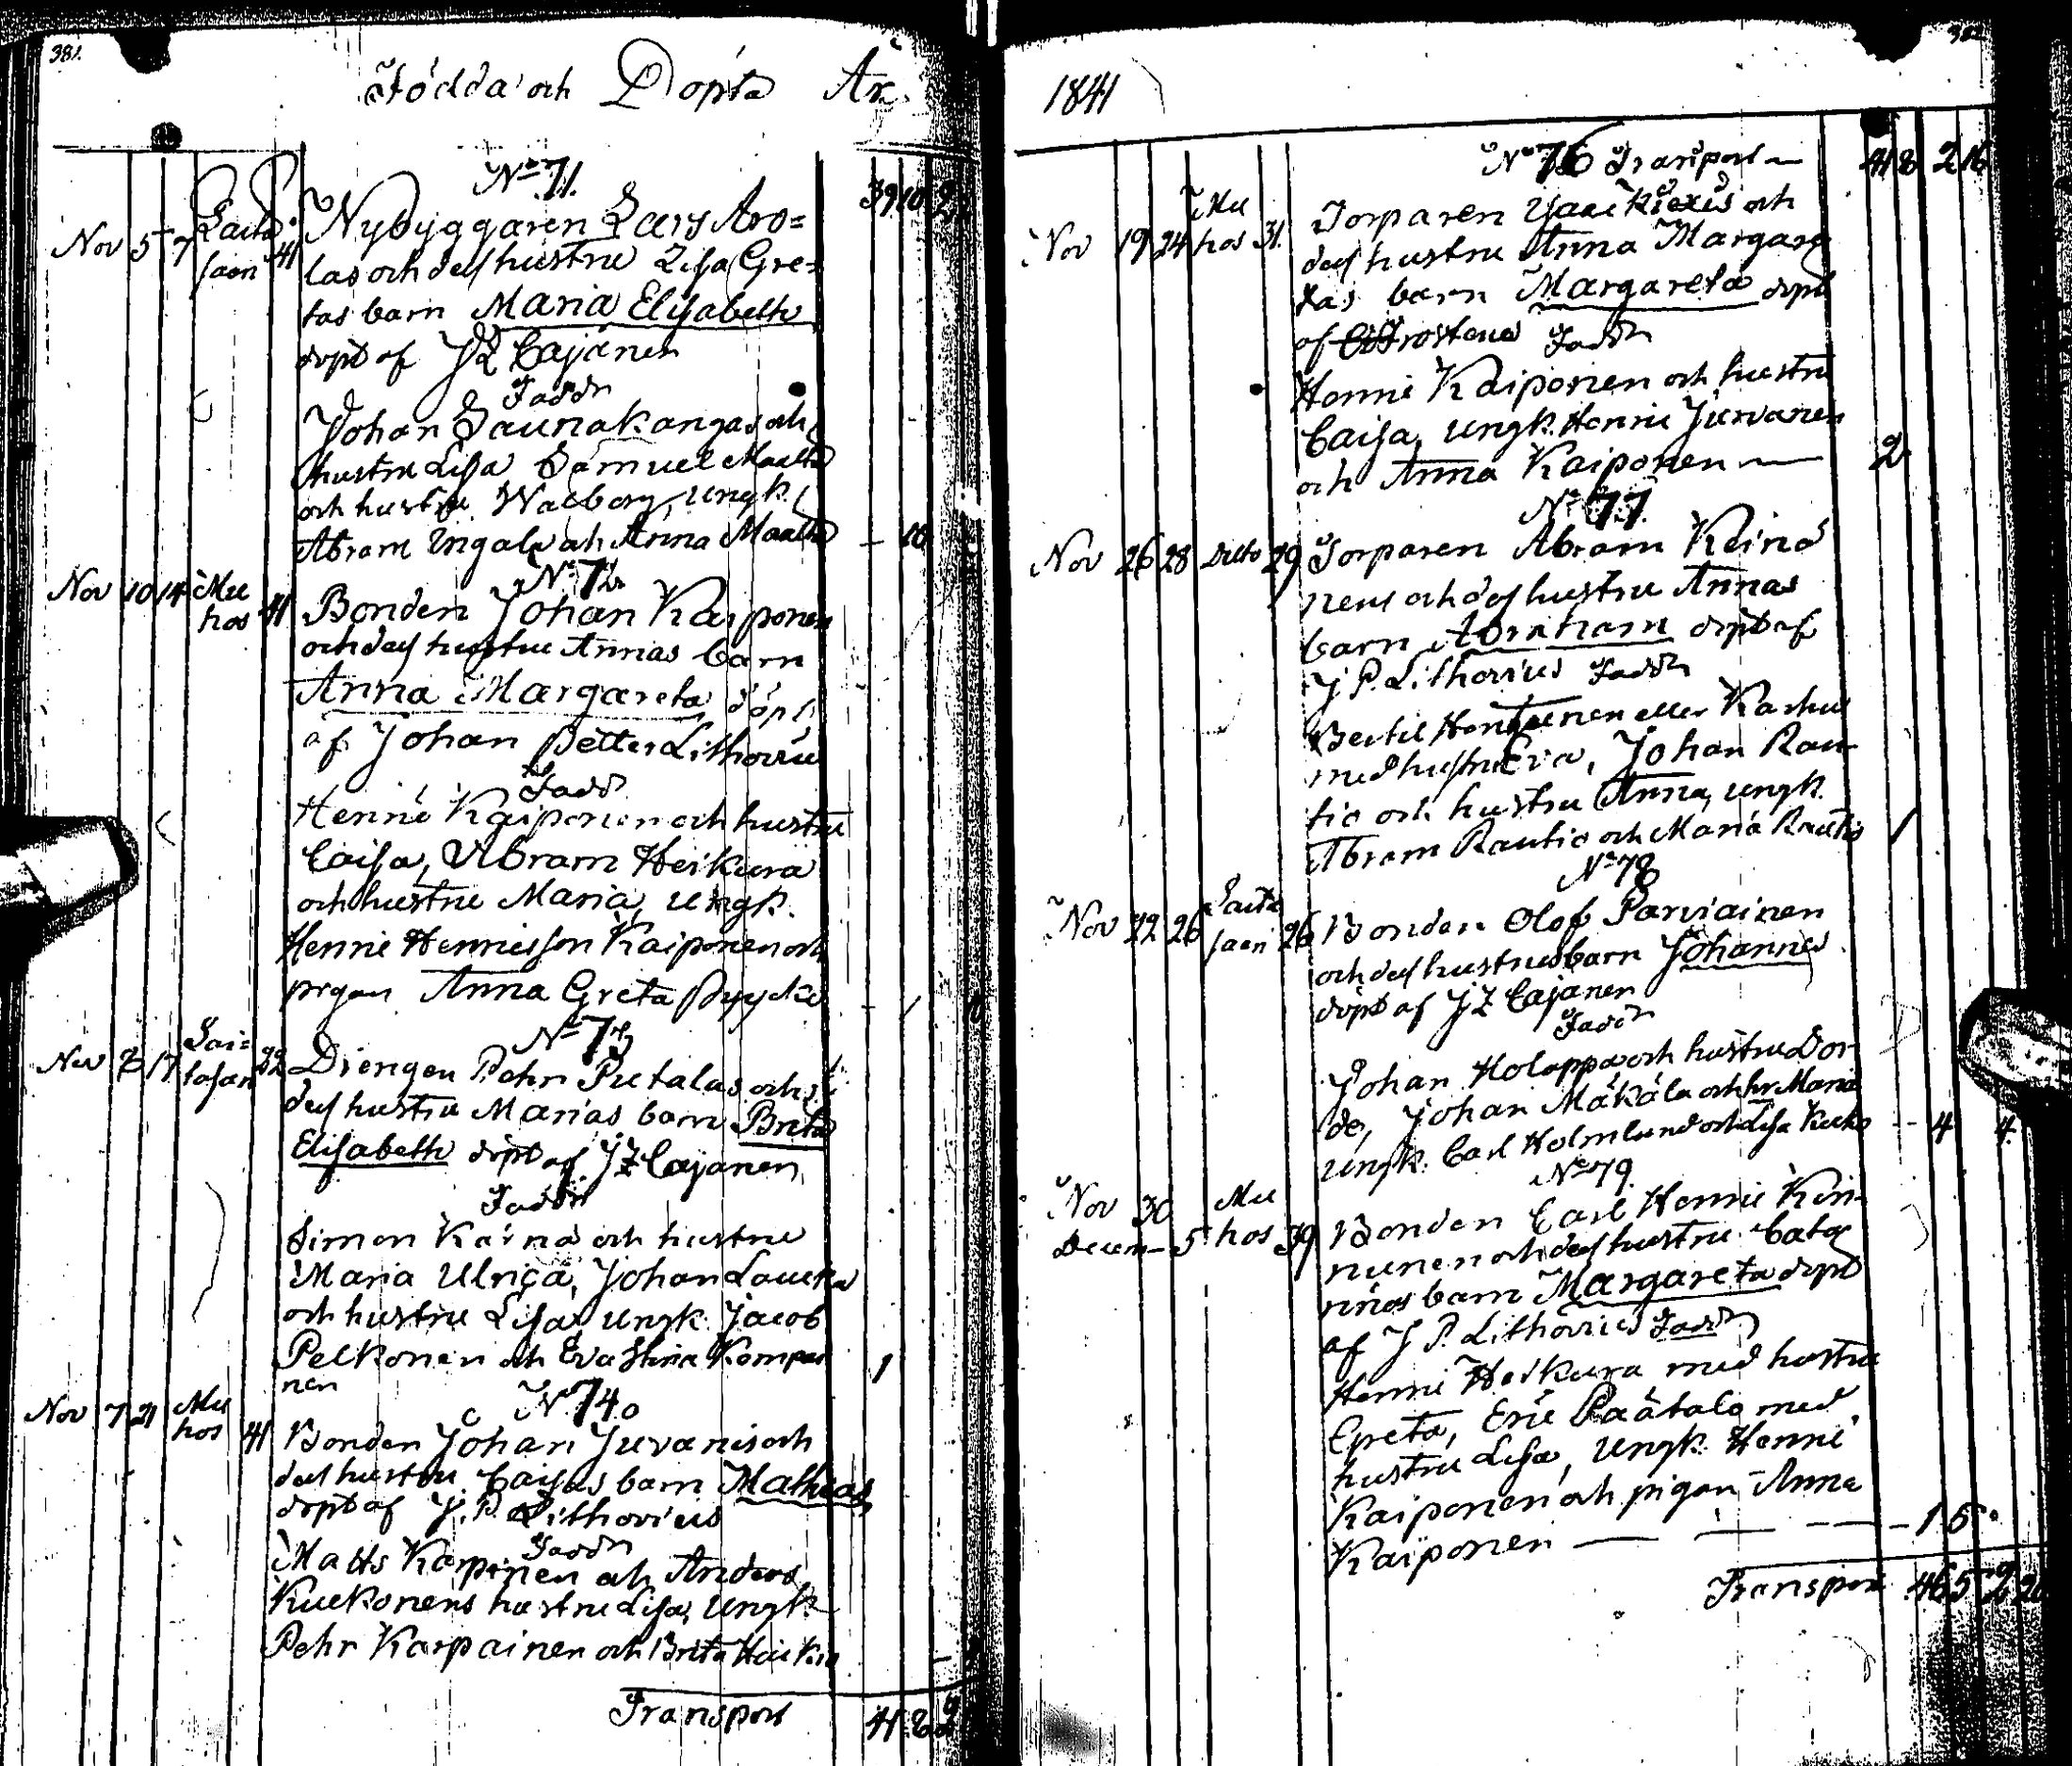 381.
Födda och Döpta År
No 71.
39 10 2
Nov 5 7 Laita
saari 41
Nybyggaren Lars Aro=
las och dess hustru Lisa Gre=
tas barn Maria Elisabeth
döpt af J Z Cajanen
Faddr
Johan Saunakangas och
hustru Lisa Samuel Maalta
och hustru Walborg, ungk.
Abram Ungalo och Anna Maalta – 10
No 72
Nov 10 14 Mu
hos 41
Bonden Johan Kaiponen
och dess hustru Annas barn
Anna Margareta döpt
af Johan Petter Lithovius
Fadd
Henric Kaiponen och hustru
Caisa, Abram Heikura
och hustru Maria, ungk.
Henric Henricsson Kaiponen och
pigan Anna Greta Pyyckö – 1
No 73
Nov 8 17 Lai=
tasari 32
Drengen Pehr Pietalas och
dess hustru Marias barn Brita
Elisabeth döpt af J Z Cajanen
Faddr
Simon Kärnä och hustru
Maria Ulrica, Johan Laucka
och hustru Lisa, ungk. Jacob
Pelkonen och Eva Stina Kompai
nen 1
No 74.
Nov 7 21 Mu
hos 41
Bonden Johan Juvanis och
dess hustru Caisas barn Mathias
döpt af J. P. Lithovius
Faddr
Matts Karpinen och Anders
Kuckonens hustru Lisa, ungk
Pehr Karpainen och Brita Heikura
Transport 41 8 2
382
1841
No 76 Transport – 41 8 2 16
Nov 19 24 Mu
hos 31.
Torparen och
dess hustru Anna Margare
tas barn Margareta döpt
af Faddr
Henric Kaiponen och hustru
Caisa, ungk. Henric Juvanen
och Anna Kaiponen – 2
No 77
Nov 26 28 Ditto 29
Torparen Abram Keinä
nens och dess hustru Annas
barn Abraham döpt af
J. P. Lithovius Faddr
Bertil Hentunen eller Karhu
med hustru Eva, Johan Rau
tio och hustru Anna, ungk.
Abram Rautio och Maria Rautio 1
No 78
Nov 22 26 Laita
saari 26
Bonden Olof Parviainen
och dess hustrus barn Johannes
döpt af J Z Cajanen
Faddr
Johan Holappa och hustru Dor
de, Johan Mäkälä och hr Maria
ungk. Carl Holmlund och Lisa Kucko – 4 4.
No 79.
Nov 30
Decem– 5 Mu
hos 39
Bonden Carl Henric Kin-
nunen och dess hustru Cata
rinas barn Margareta döpt
af J P. Lithovius Faddr
Henric Heikura med hustru
Greta, Eric Päätalo med
hustru Lisa, ungk. Henric
Kaiponen och pigan Anna
Kaiponen – – – – 1 5.
Transport 46 5 2 20